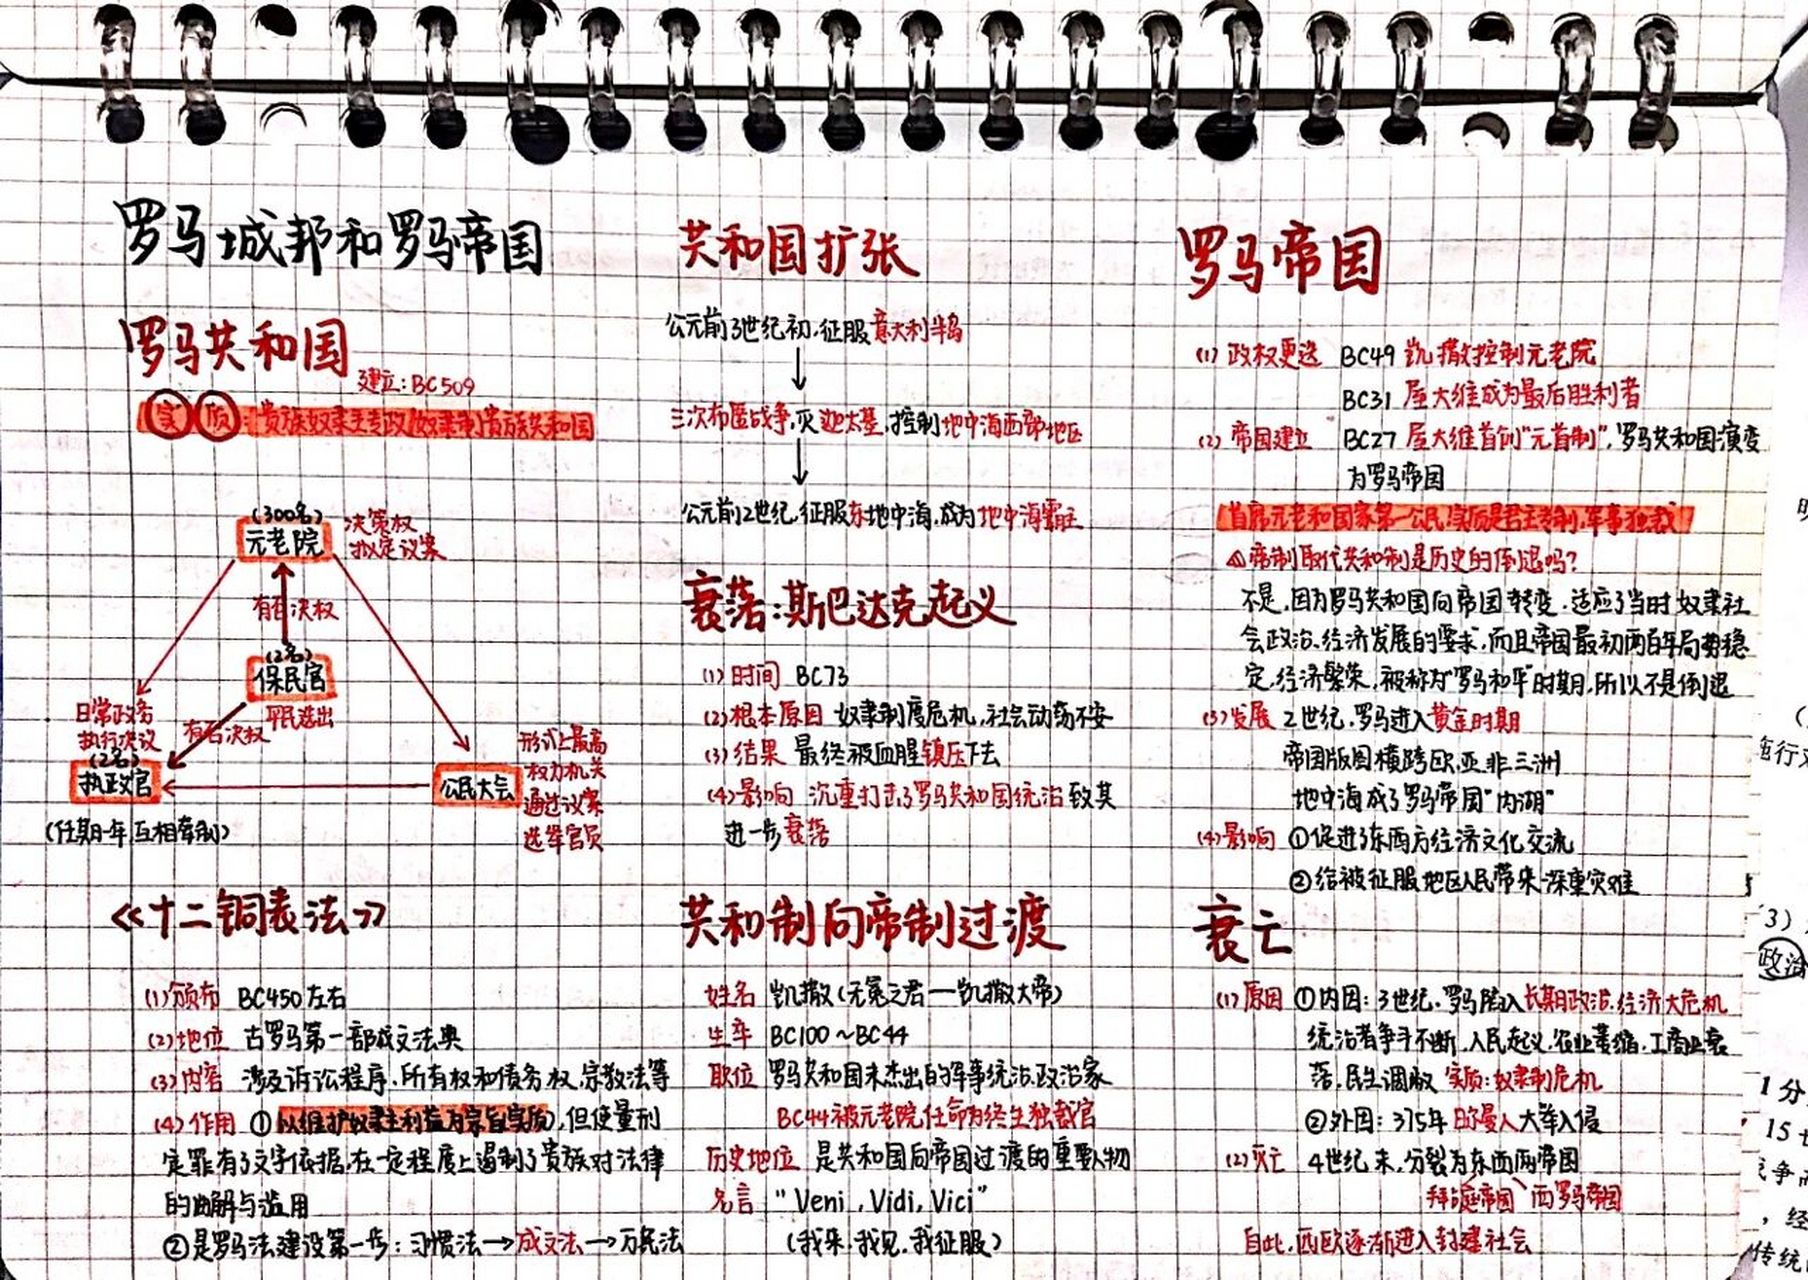 罗马城邦和罗马帝国
罗马共和国
建立:BC509
实质:贵族奴隶主专政/奴隶制贵族共和国
(300名)
元老院
决策权
拟定议案
有否决权
(2名)
保民官
平民选出
日常政务
执行决议
(2名)
执政官
有否决权
(任期一年,互相牵制)
公民大会
形式上最高
权力机关
通过议案
选举官员
《十二铜表法》
(1)颁布 BC450左右
(2)地位 古罗马第一部成文法典
(3)内容 涉及诉讼程序、所有权和债务权、宗教法等
(4)作用 ①以维护奴隶主利益为宗旨(实质),但使量刑
定罪有了文字依据,在一定程度上遏制了贵族对法律
的曲解与滥用
②是罗马法建设第一步:习惯法→成文法→万民法
共和国扩张
公元前3世纪初,征服意大利半岛
三次布匿战争,灭迦太基,控制地中海西部地区
公元前2世纪,征服东地中海,成为地中海霸主
衰落:斯巴达克起义
(1)时间 BC73
(2)根本原因 奴隶制度危机,社会动荡不安
(3)结果 最终被血腥镇压下去
(4)影响 沉重打击了罗马共和国统治,致其
进一步衰落
共和制向帝制过渡
姓名 凯撒(无冕之君—凯撒大帝)
生卒 BC100~BC44
职位 罗马共和国末杰出的军事统治、政治家
BC44被元老院任命为终生独裁官
历史地位 是共和国向帝国过渡的重要人物
名言 "Veni, Vidi, Vici"
(我来,我见,我征服)
罗马帝国
(1)政权更迭 BC49 凯撒控制元老院
BC31 屋大维成为最后胜利者
(2)帝国建立 BC27 屋大维首创"元首制",罗马共和国演变
为罗马帝国
首席元老和国家第一公民,实质是君主专制,军事独裁
△帝制取代共和制是历史的倒退吗?
不是,因为罗马共和国向帝国转变,适应了当时奴隶社
会政治、经济发展的要求,而且帝国最初两百年局势稳
定,经济繁荣,被称为"罗马和平"时期,所以不是倒退
(3)发展 2世纪,罗马进入黄金时期
帝国版图横跨欧亚非三洲
地中海成了罗马帝国"内湖"
(4)影响 ①促进了东西方经济文化交流
②给被征服地区人民带来深重灾难
衰亡
(1)原因 ①内因:3世纪,罗马陷入长期政治、经济大危机
统治者争斗不断,人民起义,农业萎缩,工商业衰
落,民生凋敝 实质:奴隶制危机
②外因:375年日耳曼人大举入侵
(2)灭亡 4世纪末,分裂为东西两帝国
拜占庭帝国 西罗马帝国
自此,西欧逐渐进入封建社会
(3)
政治
1分
15
争
,经
传统